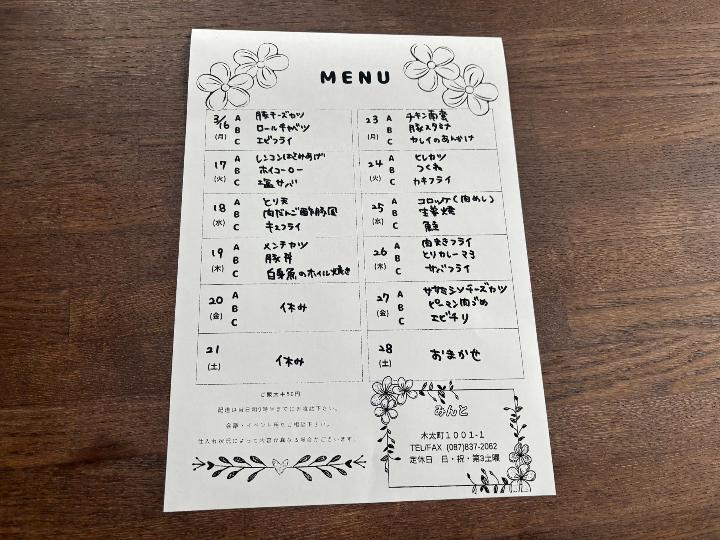 MENU
3/16 (月)
A 豚チーズカツ
B ロールキャベツ
C エビフライ
17 (火)
A レンコンはさみあげ
B ホイコーロー
C 塩サバ
18 (水)
A とり天
B 肉だんご酢豚風
C キスフライ
19 (木)
A メンチカツ
B 豚丼
C 白身魚のホイル焼き
20 (金)
A
B 休み
C
21 (土)
休み
23 (月)
A チキン南蛮
B 豚スタミナ
C カレイのあんかけ
24 (火)
A ヒレカツ
B つくね
C カキフライ
25 (水)
A コロッケ(肉めし)
B 生姜焼
C
26 (木)
A 肉巻きフライ
B とりカレーマヨ
C サバフライ
27 (金)
A ササミシソチーズカツ
B ピーマン肉づめ
C エビチリ
28 (土)
おまかせ
ご飯大+50円
配達は当日朝9時半までにお電話下さい。
会議・イベント等もご相談下さい。
仕入れ状況によって内容が異なる場合がございます。
みんと
木太町1001-1
TEL/FAX (087)837-2062
定休日 日・祝・第3土曜